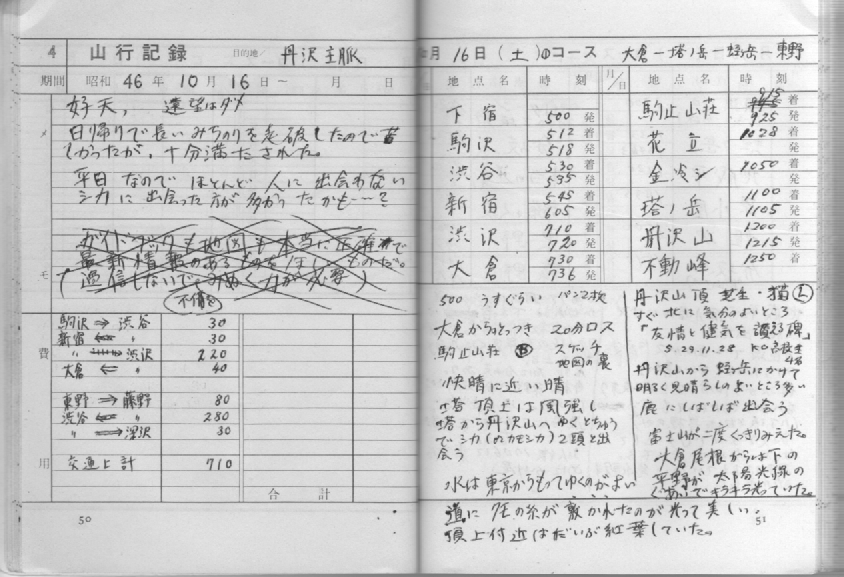 4 山行記録 目的地 丹沢主脈
期間 昭和 46 年 10 月 16 日 ~ 月 日
メモ
好天, 遠望はダメ
日帰りで長いみちのりを走破したので苦
しかったが、十分満たされた。
平日なのでほとんど人に出会わない
シカに出会った方が多かったかも……?
ガイドブックも地図も本当に正確で
最新情報のあるものをほしいものだ。
(過信しないで みぬく力が必要)
不備を
費用
駒沢 ⇒ 渋谷 30
新宿 ⇐ 〃 30
〃 ⇒ 渋沢 220
大倉 ⇐ 〃 40
東野 ⇒ 藤野 80
渋谷 ⇐ 〃 280
〃 ⇒ 深沢 30
交通上計 710
合計
50
月 16日 (土) のコース 大倉-塔ノ岳-蛭岳-東野
地点名 時刻 月/日 地点名 時刻
下宿 500 発
駒沢 512 着 518 発
渋谷 530 着 535 発
新宿 545 着 605 発
渋沢 710 着 720 発
大倉 730 着 736 発
駒止山荘 915 着 925 発
花立 1028 着
金冷シ 1050 着
塔ノ岳 1100 着 1105 発
丹沢山 1200 着 1215 発
不動峰 1250 着
500 うすぐらい パン2枚
大倉からとっつき 20分ロス
駒止山荘 スケッチ
地図の裏
快晴に近い晴
塔頂上は風強し
塔から丹沢山へゆくとちゅう
でシカ(カモシカ)2頭と出
会う
水は東京からもってゆくのがよい
丹沢山頂 芝生・猫
すぐ北に気分のよいところ
「友情と健気を讃える碑」
S.29.11.28 KO高校生
4名
丹沢山から蛭岳にかけて
明るく見晴らしのよいところ多い
鹿にしばしば出会う
富士山が二度くっきりみえた。
大倉尾根からは下の
平野が太陽光線の
ぐあいでキラキラ光っていた。
道に の糸が敷かれたのが光って美しい。
頂上付近はだいぶ紅葉していた。
51